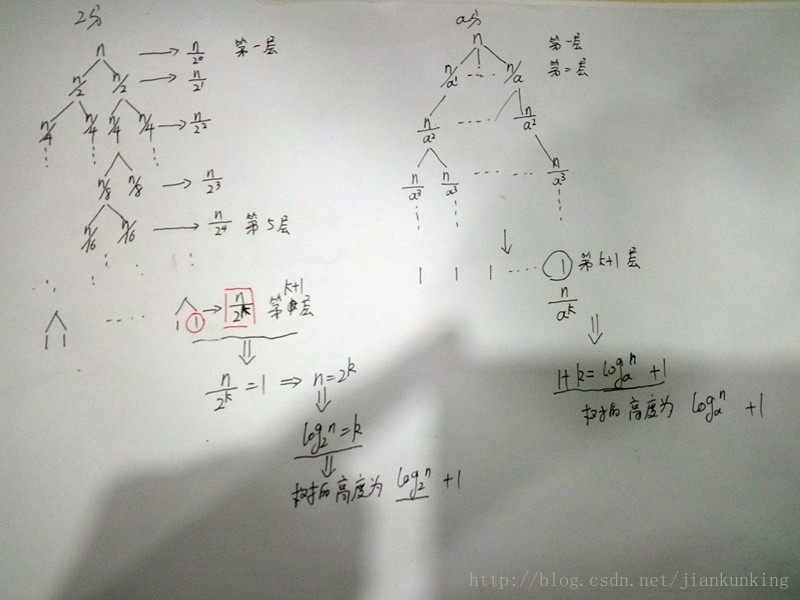 2分
n → n/2⁰ 第一层
n/2 n/2 → n/2¹
n/4 n/4 n/4 n/4 → n/2²
n/8 n/8 → n/2³
n/16 n/16 → n/2⁴ 第5层
1 1 ---- 1 1 → n/2ᵏ 第k+1层
n/2ᵏ = 1 ⇒ n = 2ᵏ
log₂ⁿ = k
树的高度为 log₂ⁿ + 1
a分
n 第一层
n/a¹ ---- n/a 第二层
n/a² ---- n/a²
n/a³ n/a³ ---- n/a³
1 1 1 ---- 1 第k+1层
n/aᵏ
1+k = logₐⁿ + 1
树的高度为 logₐⁿ + 1
http://blog.csdn.net/jiankunking